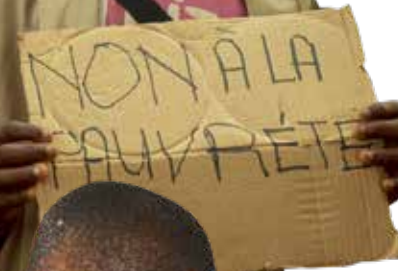 NON À LA
PAUVRÉTE